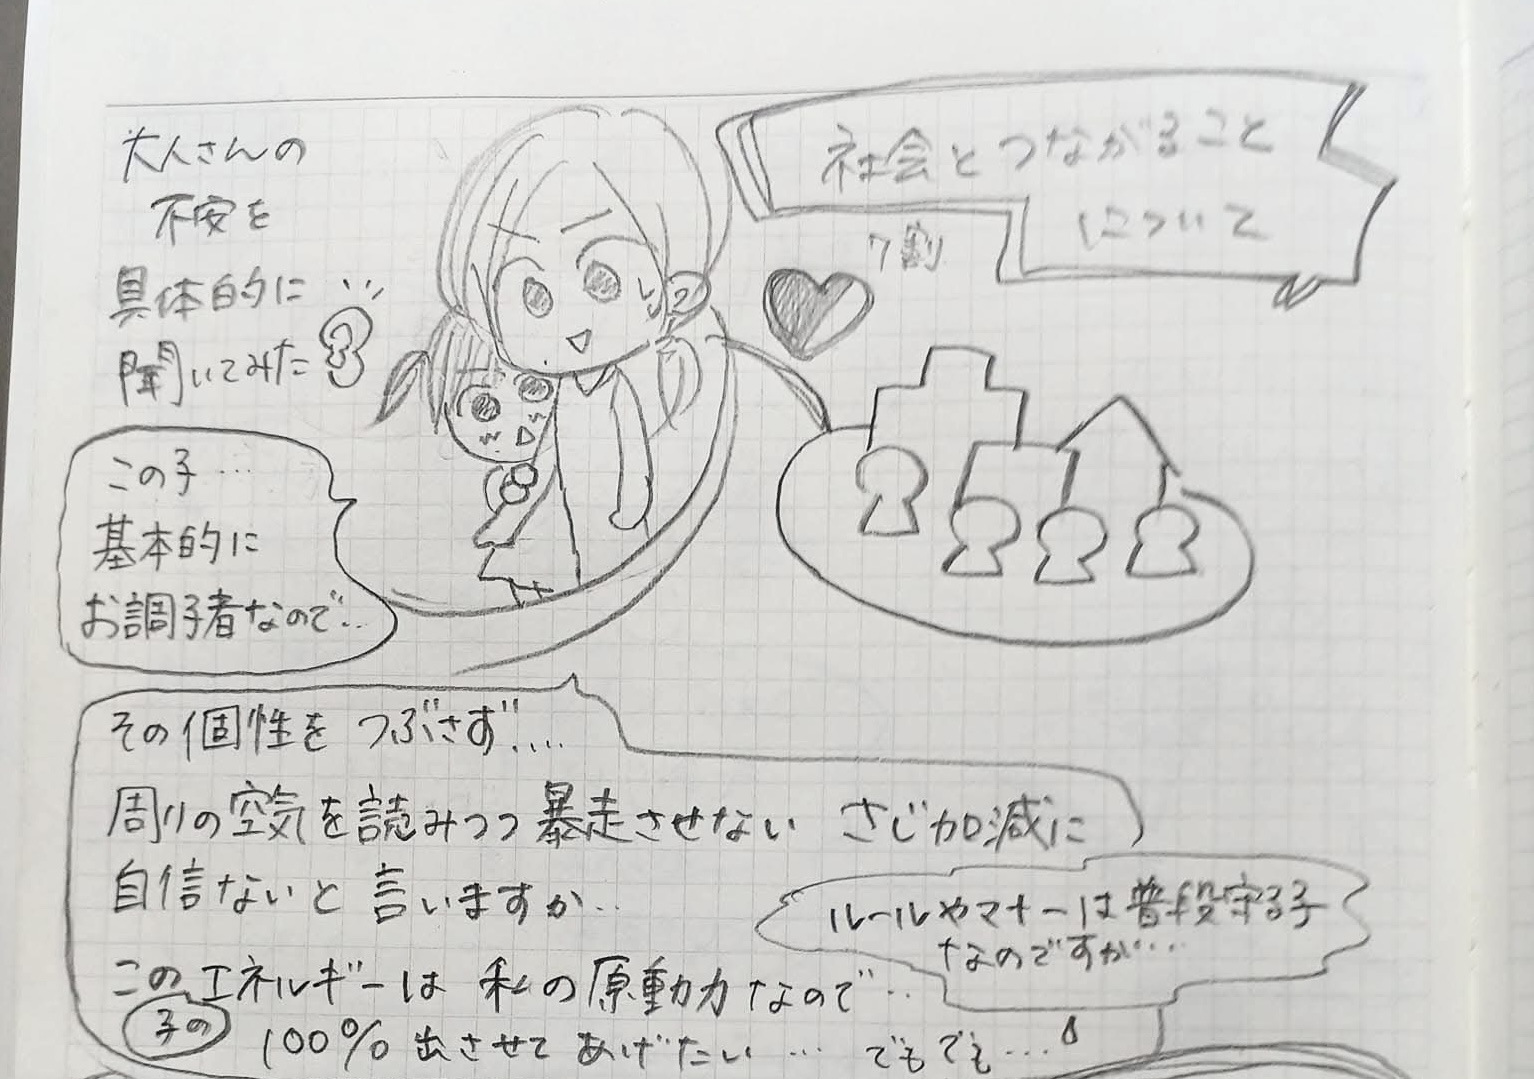 社会とつながること
について
7割
大人さんの
不安を
具体的に
聞いてみた
この子…
基本的に
お調子者なので…
その個性をつぶさず….
周りの空気を読みつつ暴走させない さじ加減に
自信ないと言いますか..
ルールやマナーは普段守る子
なのですが…
このエネルギーは私の原動力なので..
子の
100%出させてあげたい… でもでも…